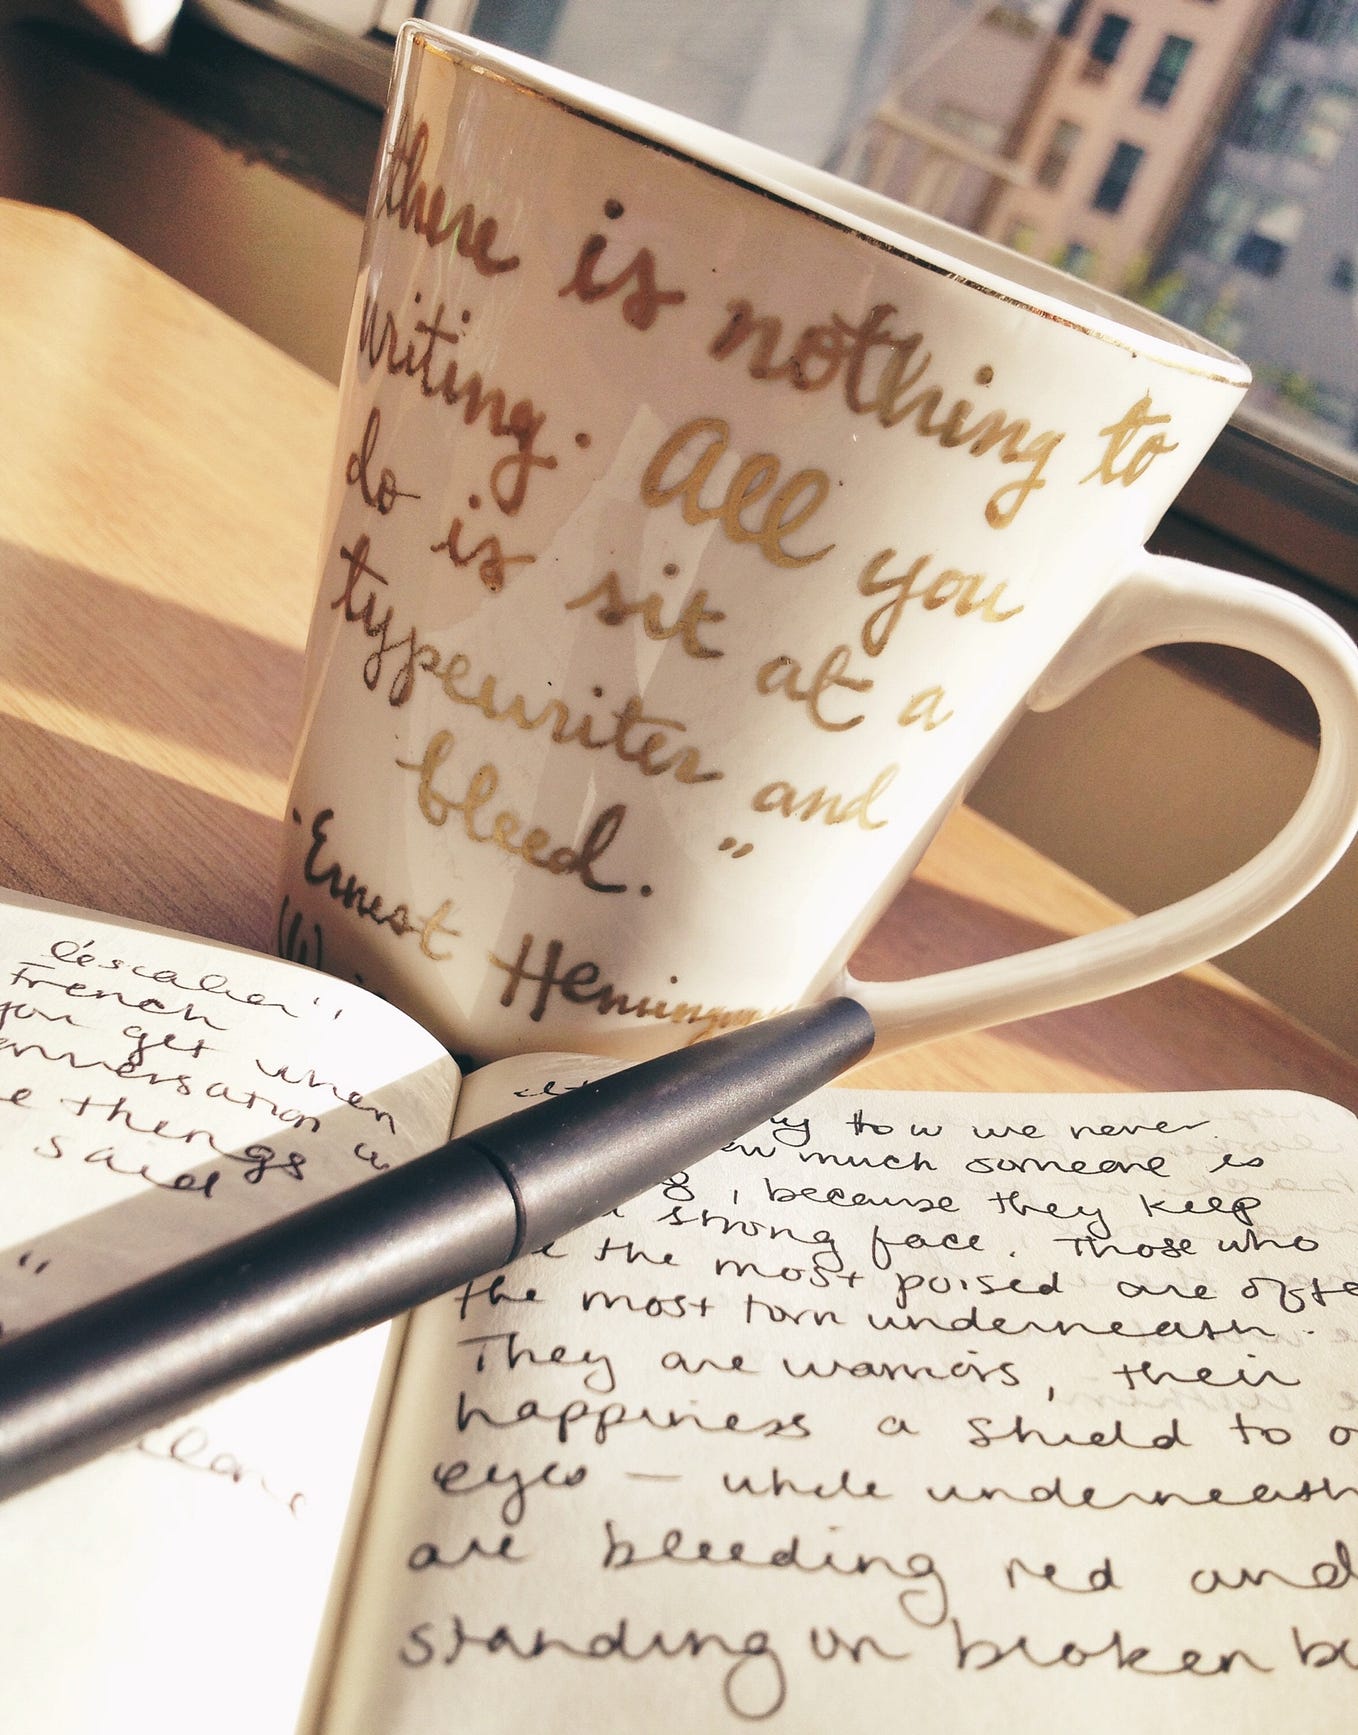 there is nothing to
writing. All you
do is sit at a
typewriter and
bleed. "
Ernest Hemingway
l'escalier",
French
you get when
conversation
the things
said
"
how we never
much someone is
, because they keep
strong face. Those who
the most poised are often
the most torn underneath.
They are warriors, their
happiness a shield to
eyes — while underneath
are bleeding red and
standing on broken